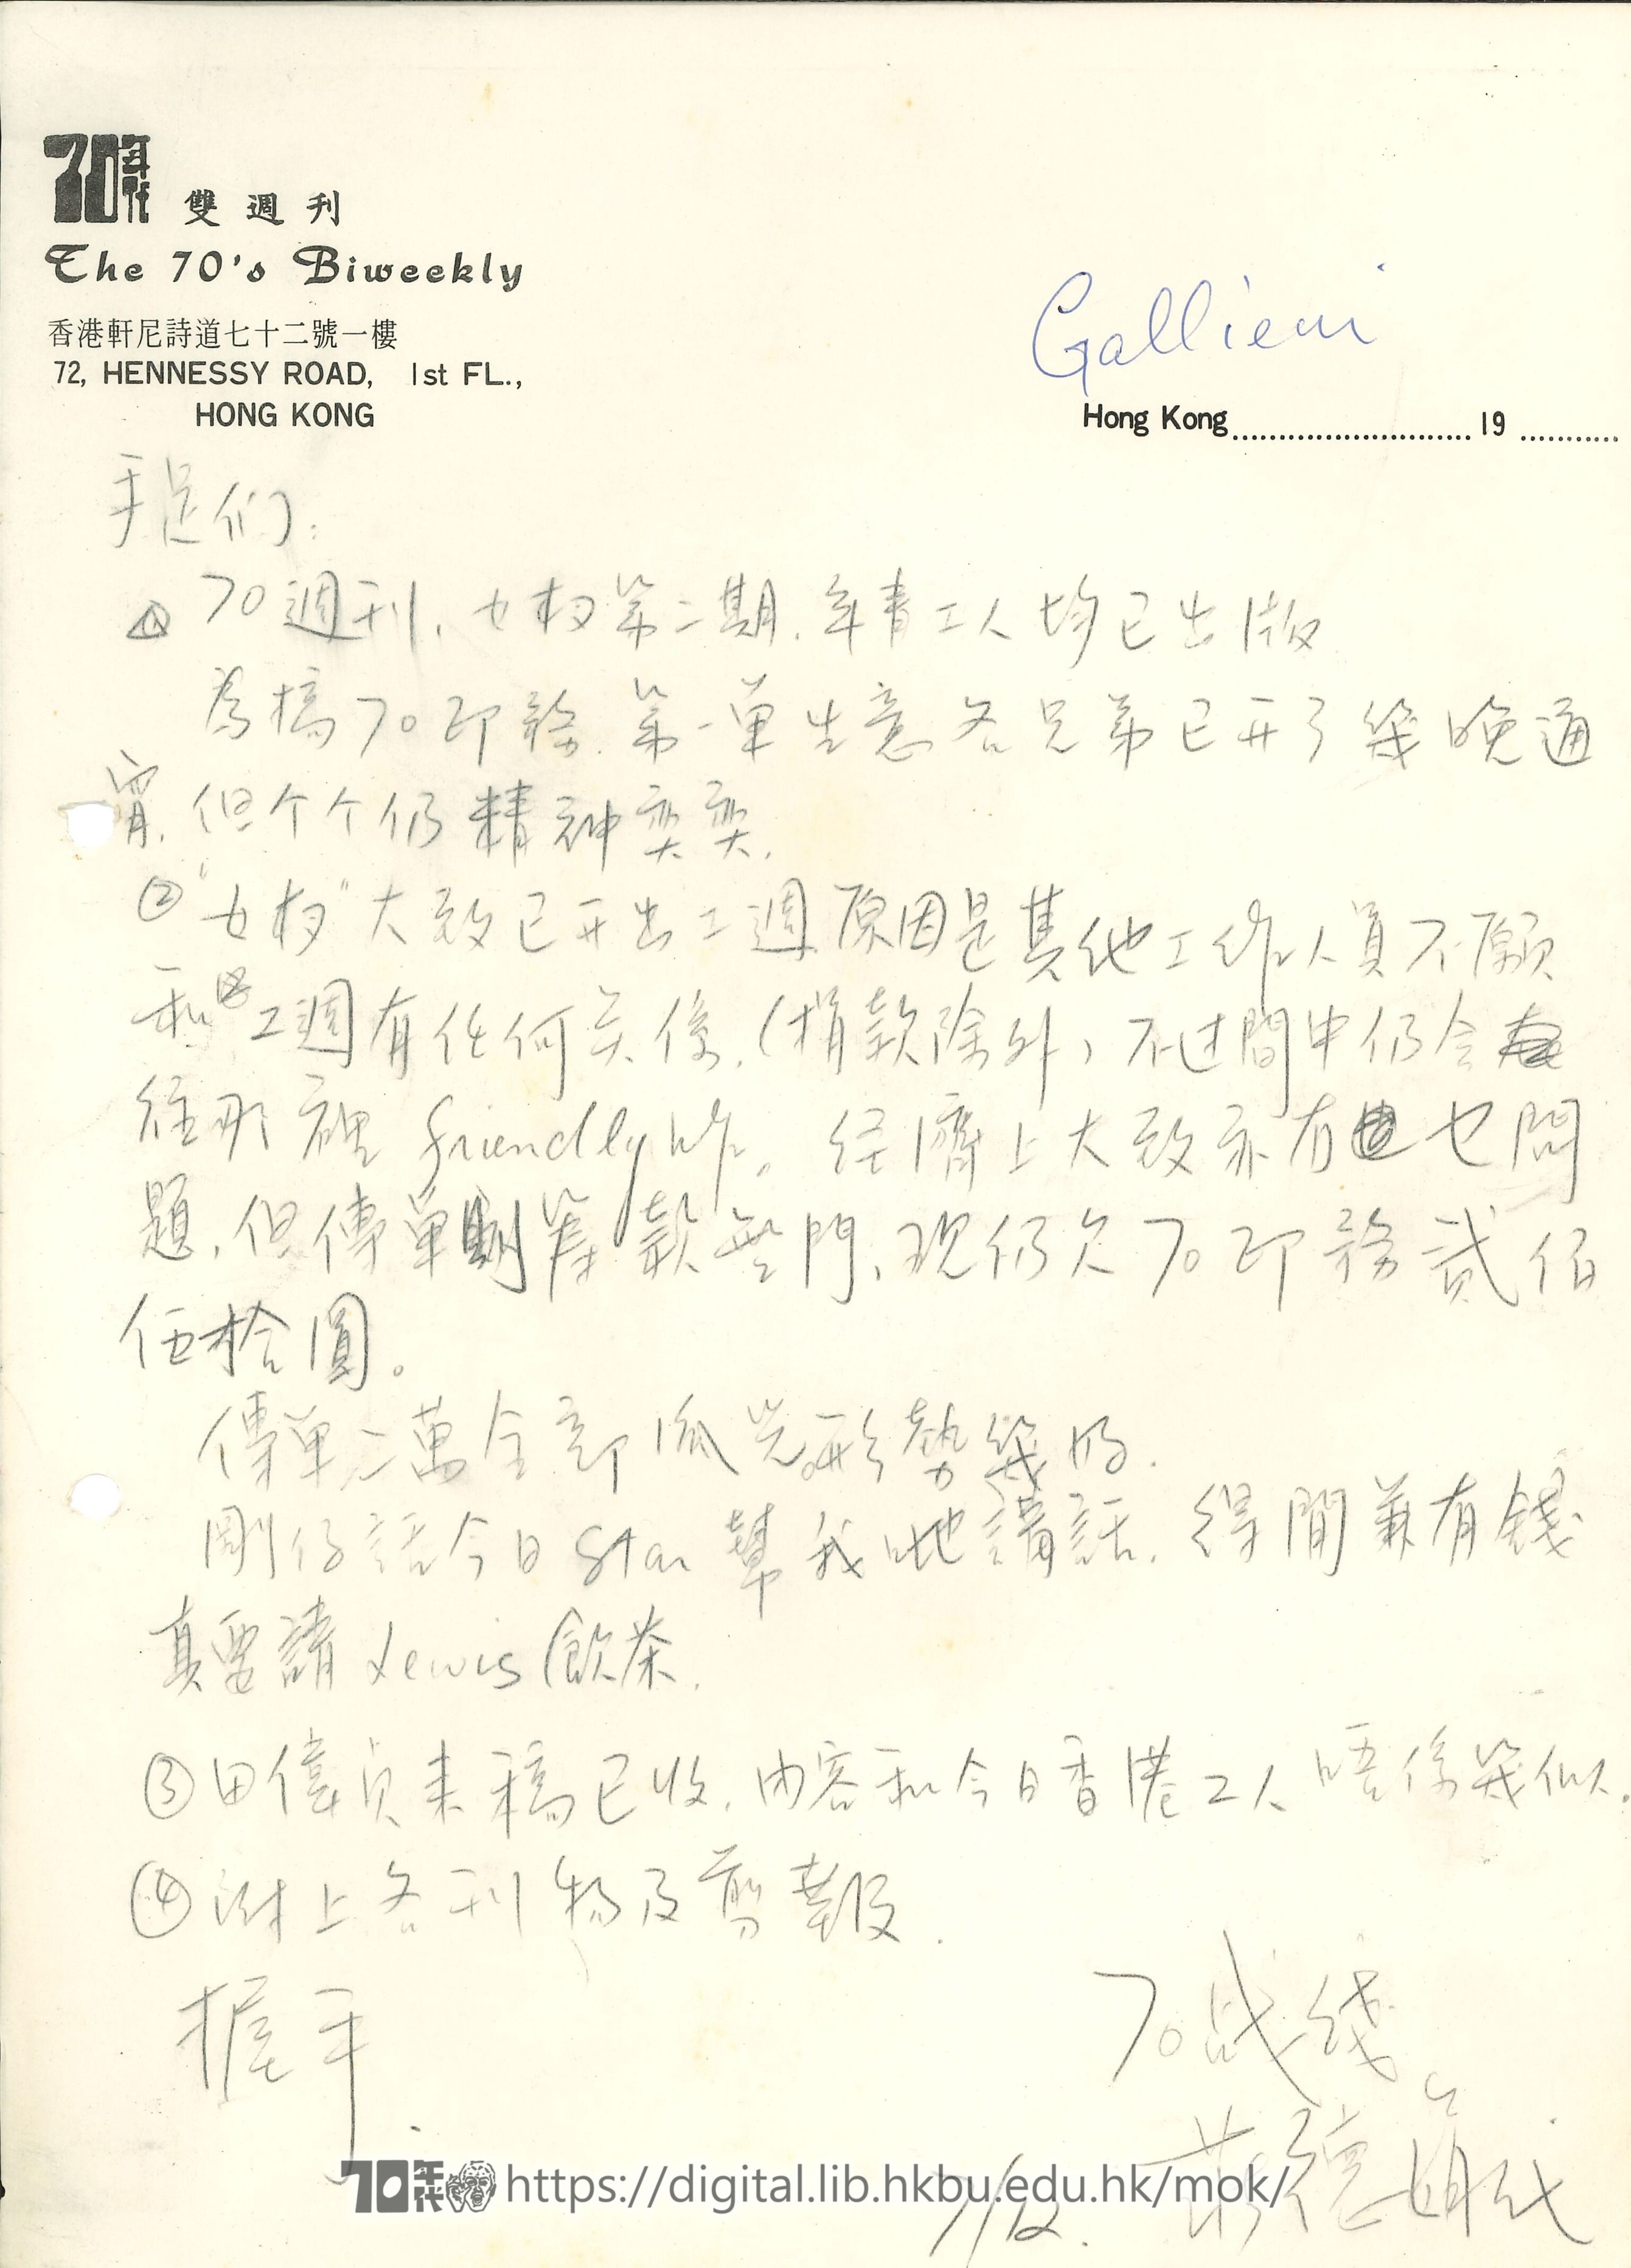 70年代 雙週刊
The 70's Biweekly
香港軒尼詩道七十二號一樓
72, HENNESSY ROAD, 1st FL.,
HONG KONG
Gallieni
Hong Kong 19
手足们:
① 70週刊、女权第二期、年青工人均已出版
為搞70印務第一單生意各兄弟已开了幾晚通
宵,但个个仍精神奕奕.
② "女权"大致已开出工週原因是其他工作人員不願
和工週有任何关係.(捐款除外,不过間中仍会
往那裡friendly吓。经濟上大致亦冇乜問
題,但傳單則筹款無門,现仍欠70印務貳佰
伍拾圓。
傳單二萬全部派光.形勢幾好.
剛仔話今日Star幫我哋講話.得閒兼有錢
真要請Lewis飲茶.
③ 田偉貞来稿已收.内容和今日香港工人唔係幾似.
④ 附上各刊物及剪報.
握手.
70战线
7/12.
70年代 https://digital.lib.hkbu.edu.hk/mok/